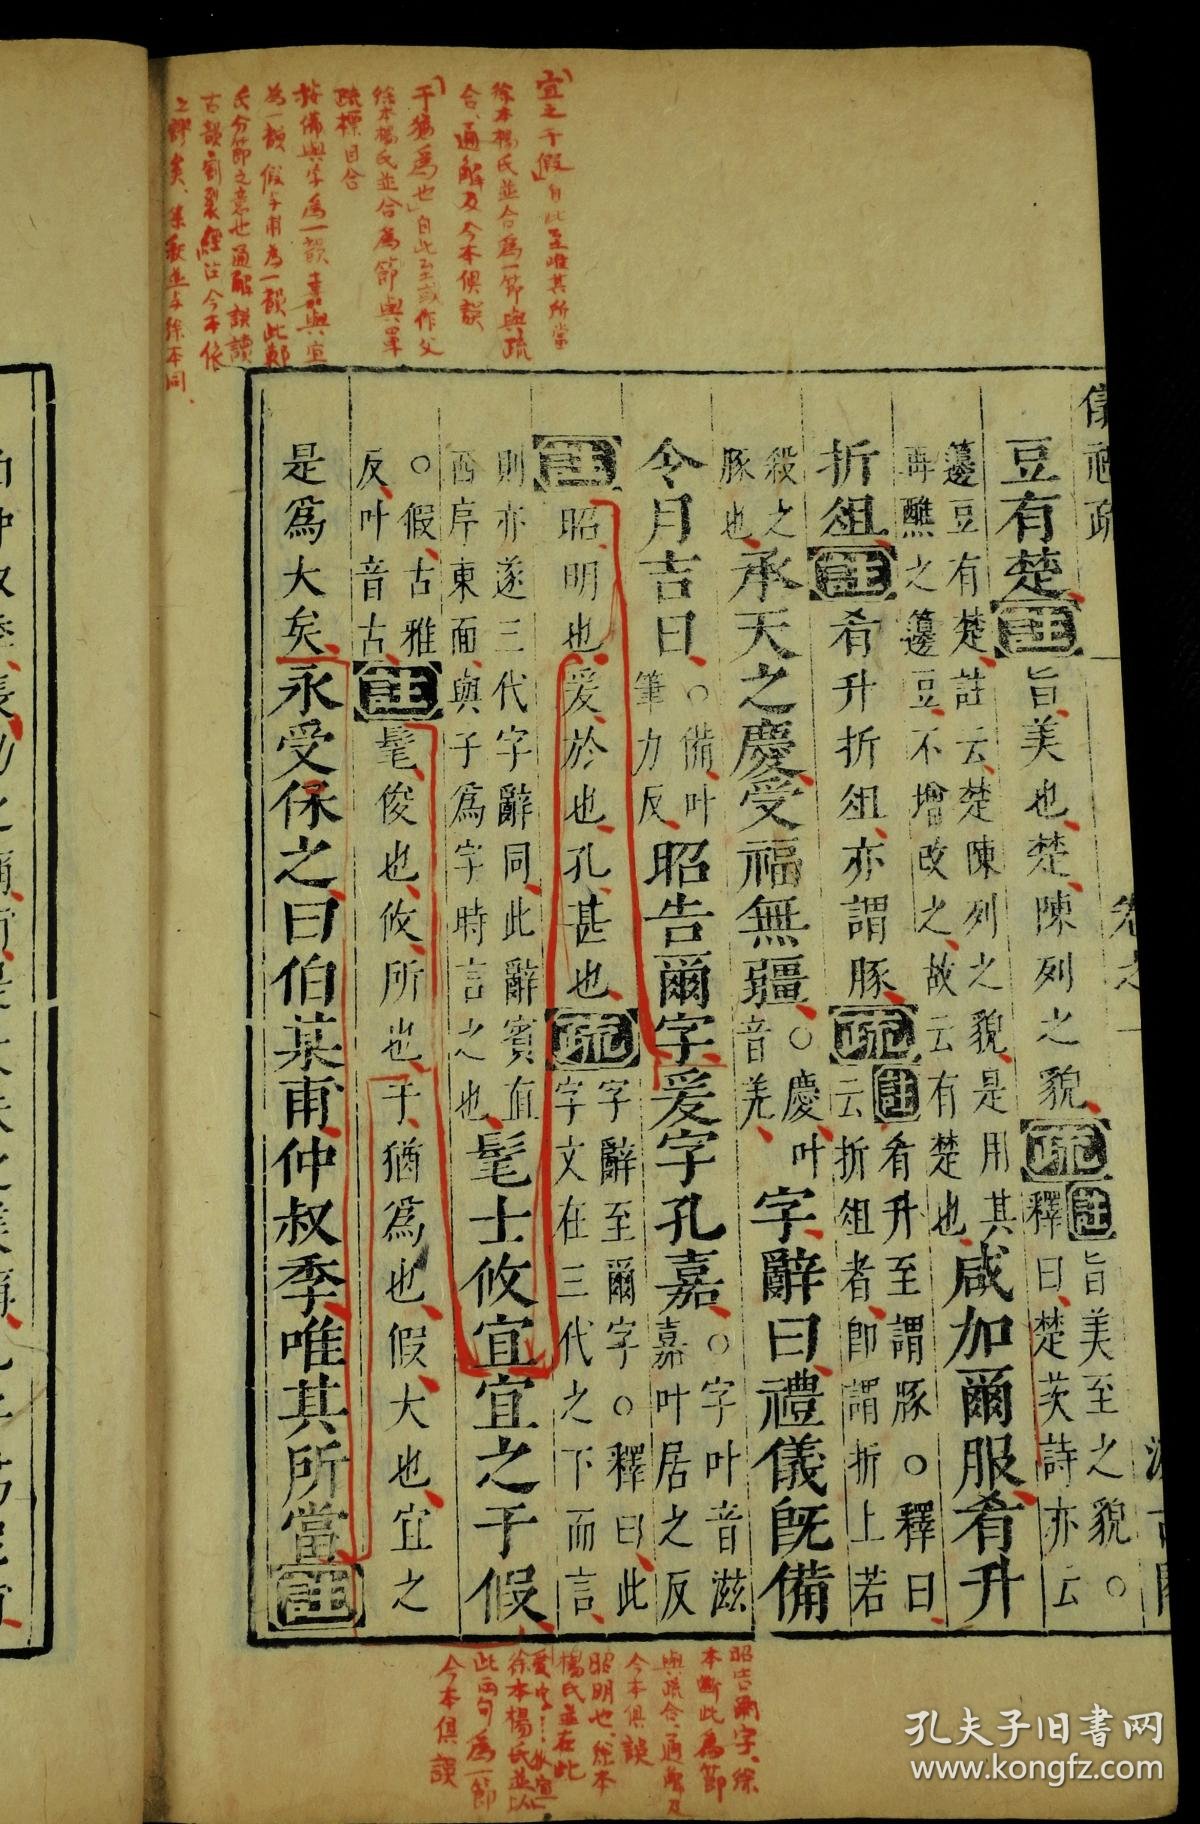 儀禮疏
卷之一
汲古閣
豆有楚註旨美也楚陳列之貌疏註旨美至之貌○
釋曰楚茨詩亦云
籩豆有楚註云楚陳列之貌是用其
再醮之籩豆不增改之故云有楚也
咸加爾服肴升
折俎註肴升折俎亦謂豚疏註肴升至謂豚○釋曰
云折俎者即謂折上若
殺之
豚也
承天之慶受福無疆○慶叶
音羌
字辭曰禮儀既備
令月吉日○備叶
筆力反
昭告爾字爰字孔嘉○字叶音滋
嘉叶居之反
註昭明也爰於也孔甚也疏字辭至爾字○釋曰此
字文在三代之下而言
則亦遂三代字辭同此辭賓直
西序東面與子為字時言之也
髦士攸宜宜之于假
○假古雅
反叶音古
註髦俊也攸所也于猶爲也假大也宜之
是爲大矣永受保之曰伯某甫仲叔季唯其所當註
宜之于假自此至唯其所當
徐本楊氏並合爲一節與疏
合通解及今本俱誤
于猶爲也自此至或作父
徐本楊氏並合爲節與單
疏標目合
按備與字爲一韻嘉與宜
爲一韻假與甫爲一韻此鄭
氏分節之意也通解誤讀
古韻割裂經注今本依
之謬矣集釋並與徐本同
昭告爾字徐
本斷此爲節
與疏合通解及
今本俱誤
昭明也徐本
楊氏並在此
爰字攸宜
徐本楊氏並以
此兩句爲一節
今本俱誤
孔夫子旧书网
www.kongfz.com